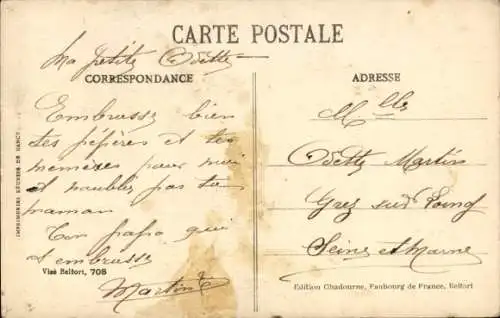 CARTE POSTALE
Ma petite Odette
CORRESPONDANCE
Embrasse bien
tes pépères et tes
memères pour moi
et n'oublie pas ta
maman
Ton papa qui
t embrasse
Martin
Visé Belfort, 708
ADRESSE
Mlle
Odette Martin
Grez sur Loing
Seine et Marne
Edition Chadourne, Faubourg de France, Belfort
IMPRIMERIES RÉUNIES DE NANCY